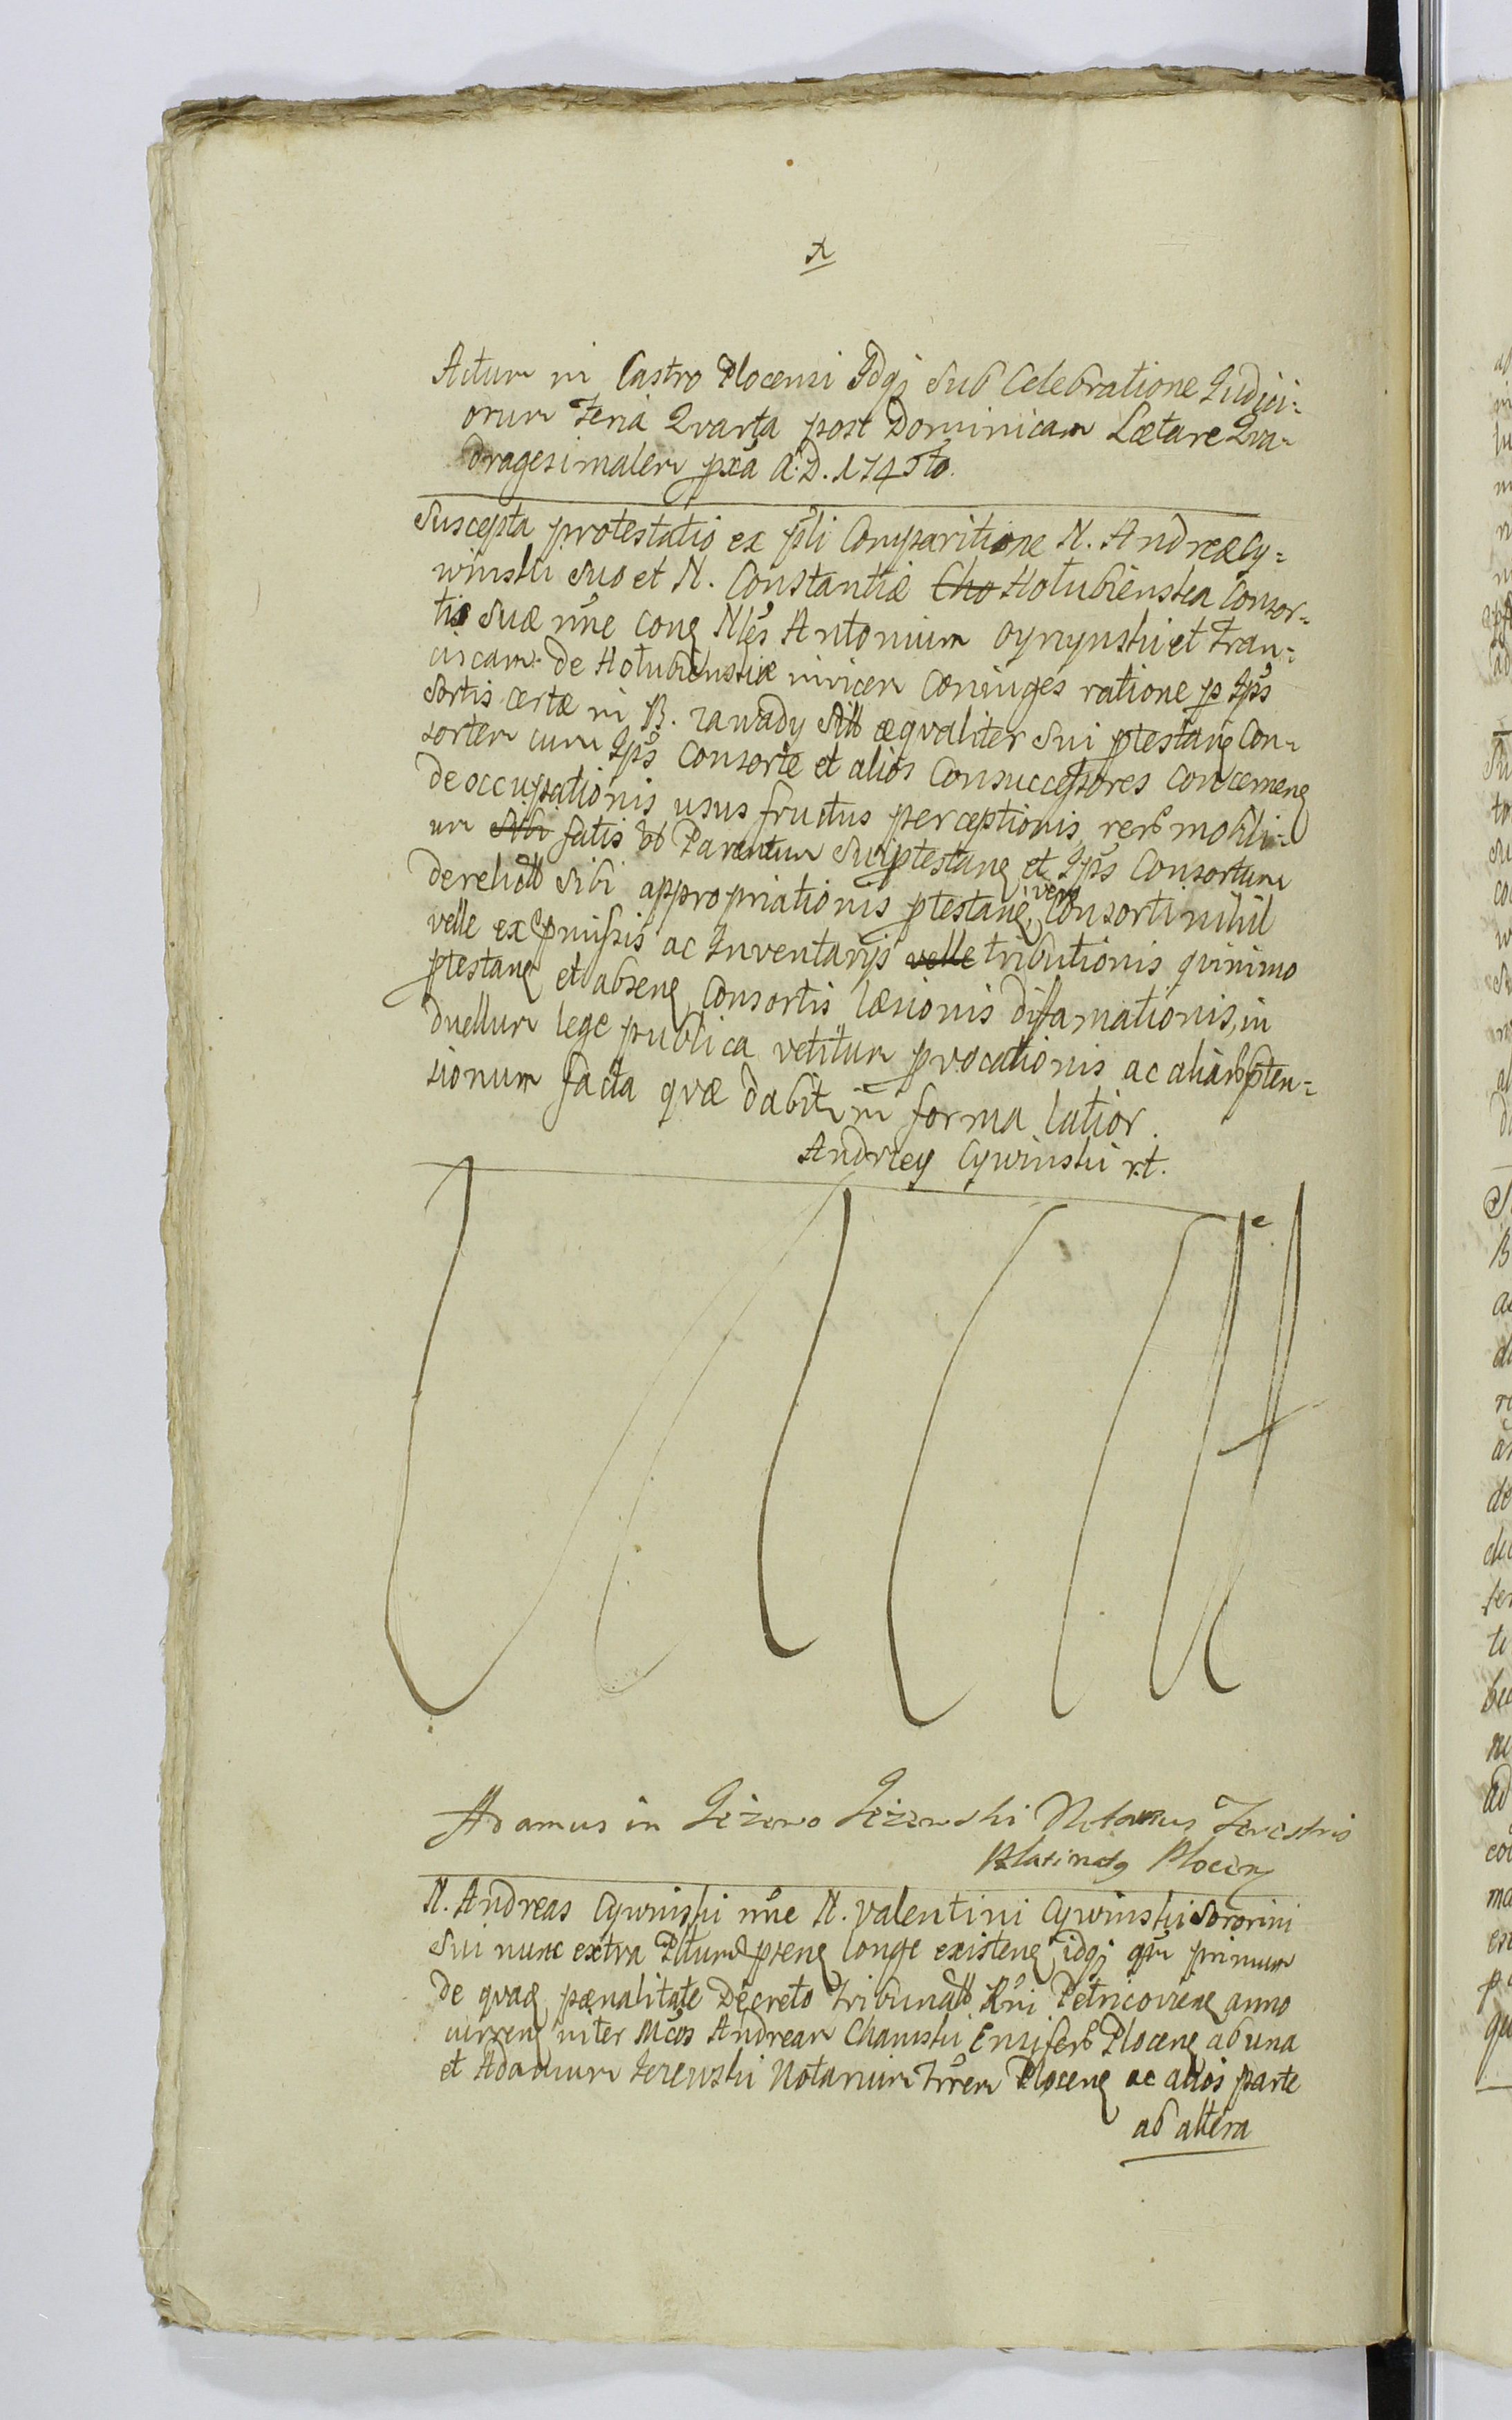 Actum in Castro Plocensi Idqj Sub Celebratione Judici=
orum Feria Qvarta post Dominicam Lætare Qva=
dragesimalem pxã A: D. 1745to.
Suscepta protestatio ex psli Comparitione N. Andreæ Cy=
winski Suo et N. Constantiæ Cho Hołubienska Consor=
tis Suæ nñe Cong Nles Antonium Oyrzynski et Fran=
ciscam de Hołubienskie invicem Coniuges ratione p Ips
Sortis certæ in B. zawady æqvaliter Sui ptestang Con=
sortem cum Ips Consorte et alios Consuccessores Concerneng
de occupationis usus fructus perceptionis, rerb mobili=
um Sibi fatis Parentum Sui ptestang et Ips Consortum
derelictb Sibi appropriationis ptestang, vero Consorti nihil
velle ex pmissis ac Inventarijs velle tributionis qvinimo
ptestang et abseng Consortis læsionis diffamationis, in
duellum lege publica vetitum pvocationis ac aliarb pten=
sionum facta qvæ dabitur in forma latior.
Andrzey Cywinski rt.
Adamus in Jeżewo Jeżewski Notarius Terestris
Platinatg Plocen
N. Andreas Cywinski nñe N. Valentini Cywinski Sororini
Sui nunc extra Pltum pseng longe existeng idqj qm primum
de qvag pænalitate Decreto Tribunalb Rni Petricovieng anno
curreng inter Mcos Andream Chamski Ensiferb Ploceng ab una
et Adamum Jezewski Notarium Trrem Ploceng ac alios parte
ab altera